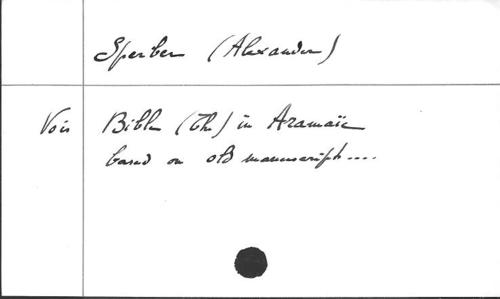 Sperber (Alexander)
Vois Bible (The) in Aramaïc
based on old manuscripts....